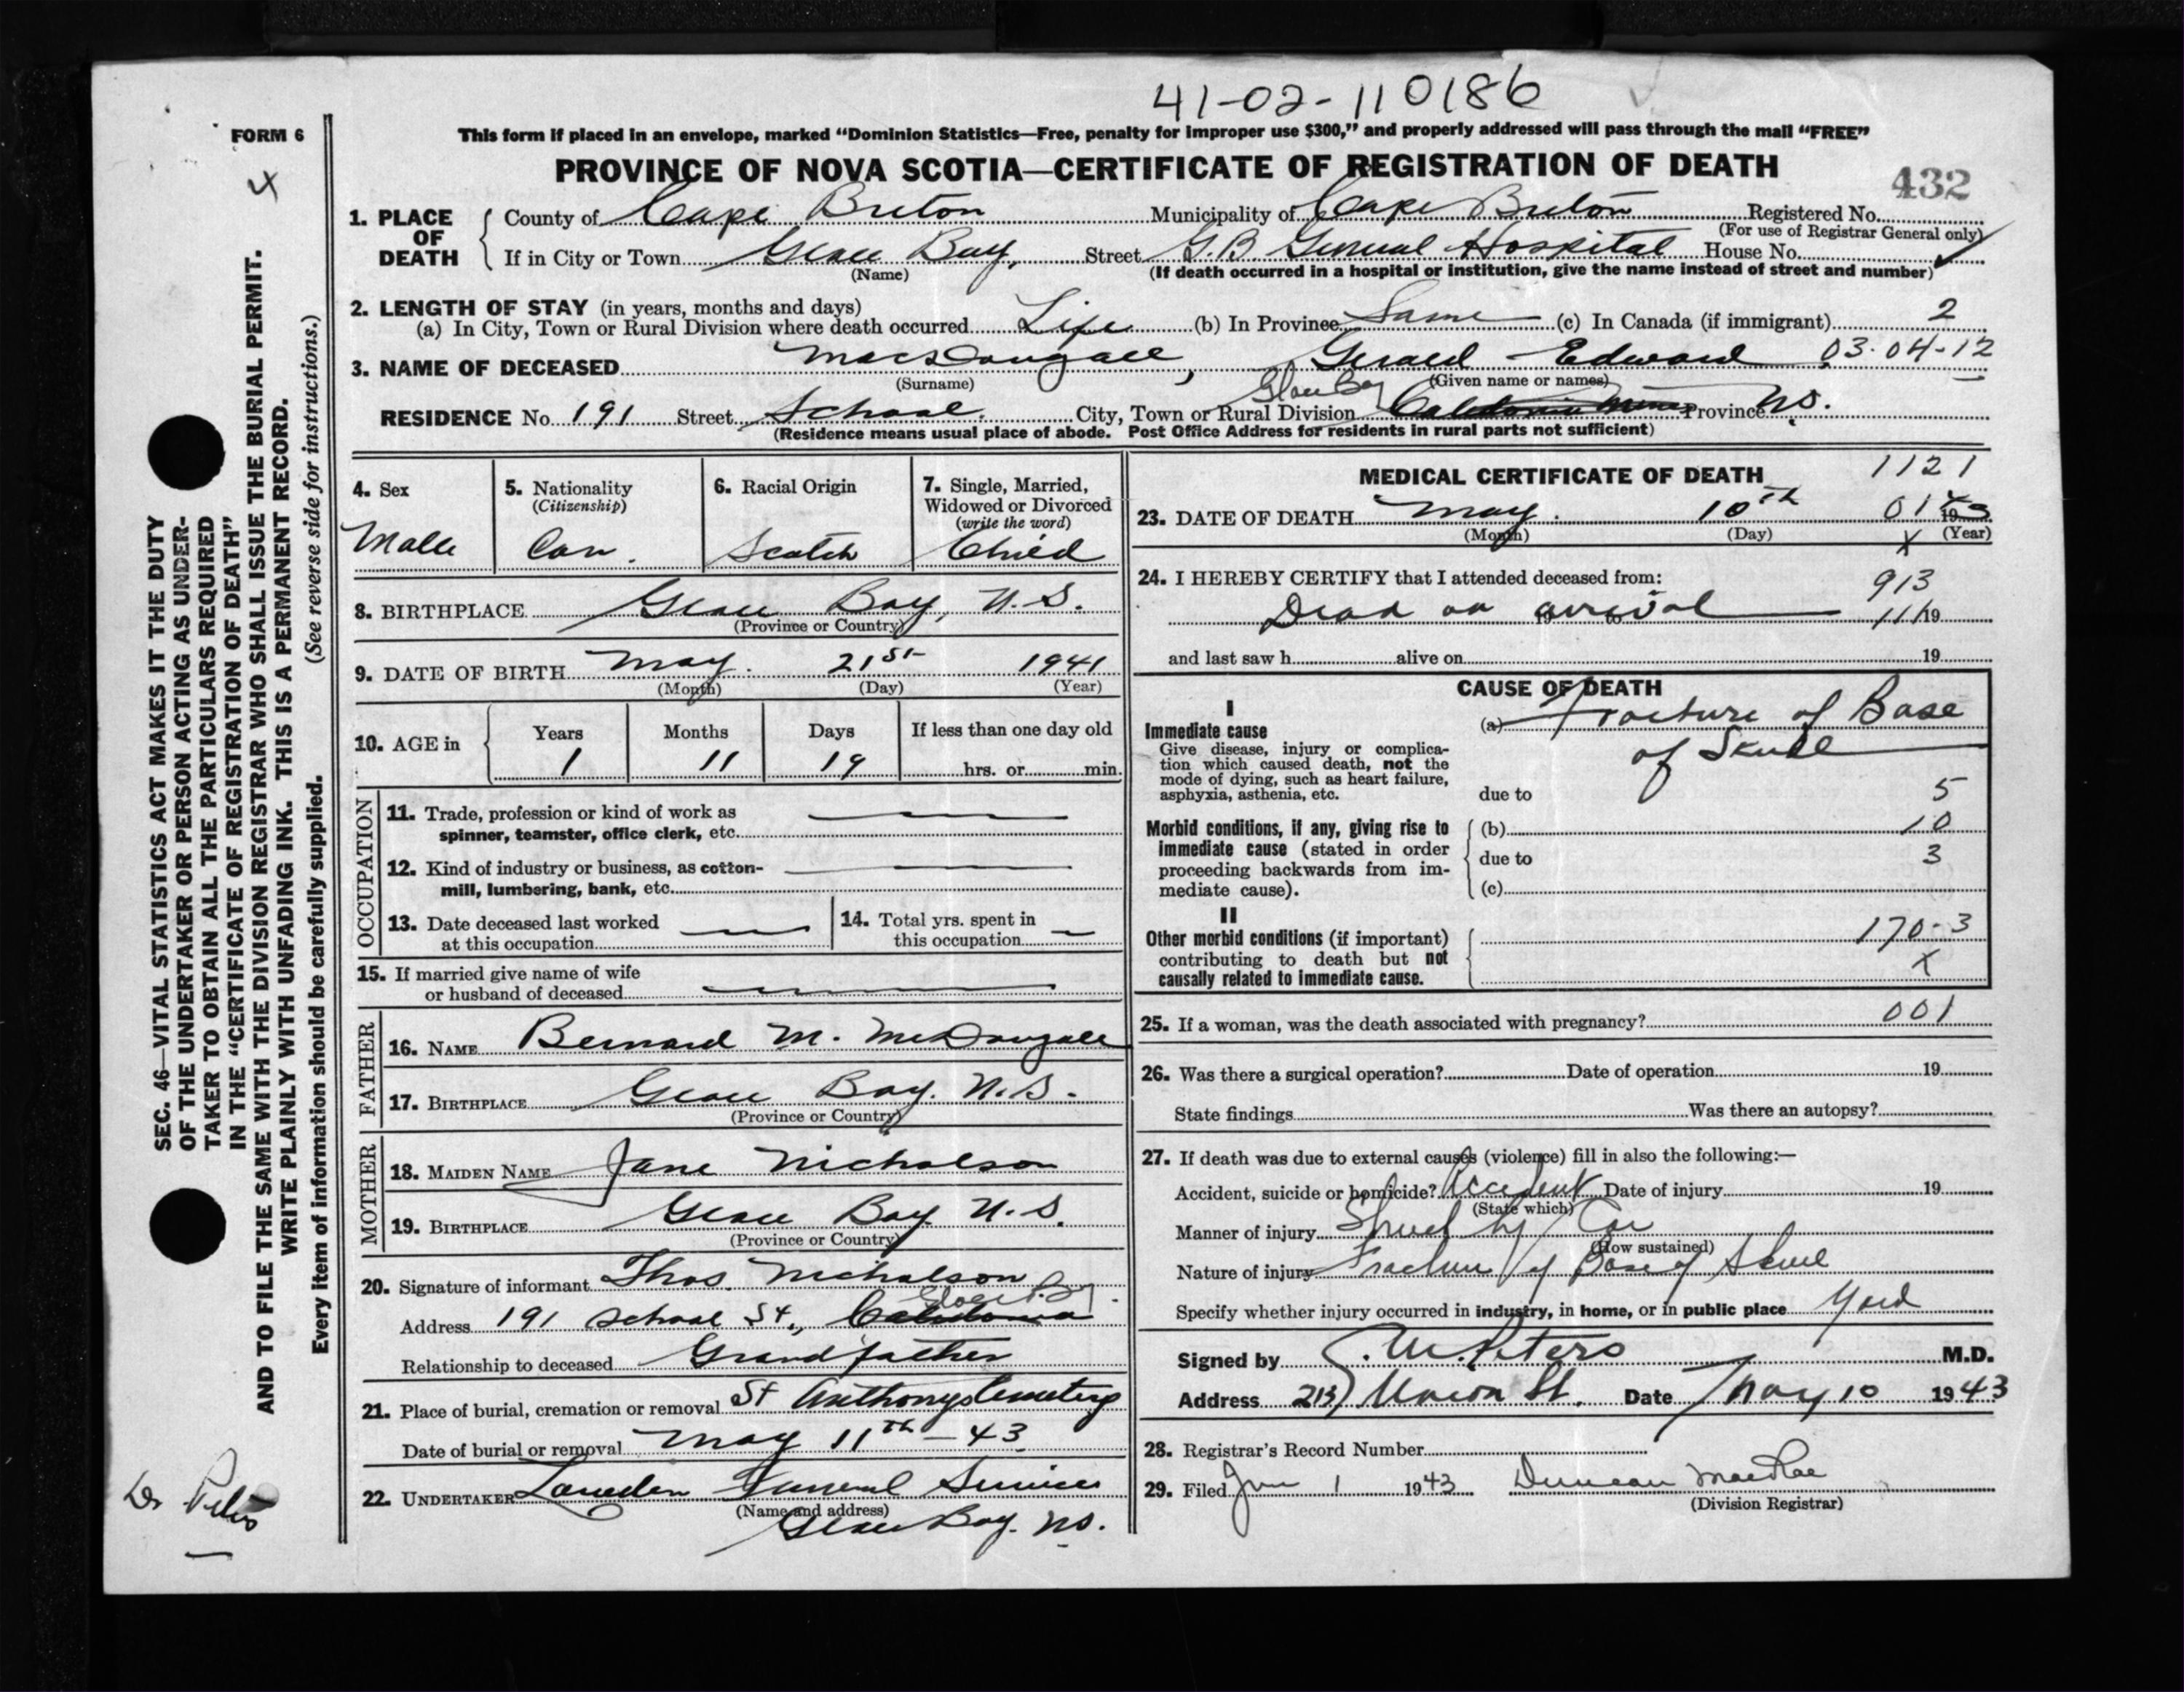 41-02-110186
FORM 6
This form if placed in an envelope, marked "Dominion Statistics—Free, penalty for improper use $300," and properly addressed will pass through the mail "FREE"
4
PROVINCE OF NOVA SCOTIA—CERTIFICATE OF REGISTRATION OF DEATH
432
1. PLACE OF DEATH
County of Cape Breton Municipality of Cape Breton Registered No.
(For use of Registrar General only)
If in City or Town Glace Bay, Street G.B. General Hospital House No.
(Name) (If death occurred in a hospital or institution, give the name instead of street and number)
2. LENGTH OF STAY (in years, months and days)
(a) In City, Town or Rural Division where death occurred Life (b) In Province Same (c) In Canada (if immigrant) 2
3. NAME OF DECEASED MacDougall, Gerald Edward 03-04-12
(Surname) (Given name or names)
Glace Bay
RESIDENCE No. 191 Street School. City, Town or Rural Division Caledonia Mines Province N.S.
(Residence means usual place of abode. Post Office Address for residents in rural parts not sufficient)
4. Sex
Male
5. Nationality
(Citizenship)
Can.
6. Racial Origin
Scotch
7. Single, Married,
Widowed or Divorced
(write the word)
Child
8. BIRTHPLACE Glace Bay, N.S.
(Province or Country)
9. DATE OF BIRTH May. 21st 1941
(Month) (Day) (Year)
10. AGE in
Years Months Days If less than one day old
1 11 19 hrs. or min.
OCCUPATION
11. Trade, profession or kind of work as
spinner, teamster, office clerk, etc.
12. Kind of industry or business, as cotton-
mill, lumbering, bank, etc.
13. Date deceased last worked
at this occupation
14. Total yrs. spent in
this occupation
15. If married give name of wife
or husband of deceased
FATHER
16. NAME Bernard M. McDougall
17. BIRTHPLACE Glace Bay. N.S.
(Province or Country)
MOTHER
18. MAIDEN NAME Jane Nicholson
19. BIRTHPLACE Glace Bay N.S.
(Province or Country)
20. Signature of informant Thos. Nicholson
Glace Bay.
Address 191 School St., Caledonia
Relationship to deceased Grandfather
21. Place of burial, cremation or removal St Anthonys Cemetery
Date of burial or removal May 11th - 43
22. UNDERTAKER Funeral Service
(Name and address)
Glace Bay. N.S.
MEDICAL CERTIFICATE OF DEATH
1121
23. DATE OF DEATH May. 10th 01 1943
(Month) (Day) (Year)
X
24. I HEREBY CERTIFY that I attended deceased from:
913
Dead on arrival 19 to 11/19
and last saw h alive on 19
CAUSE OF DEATH
I
Immediate cause
Give disease, injury or complica-
tion which caused death, not the
mode of dying, such as heart failure,
asphyxia, asthenia, etc.
(a) Fracture of Base
of Skull
due to 5
Morbid conditions, if any, giving rise to
immediate cause (stated in order
proceeding backwards from im-
mediate cause).
(b) 10
due to 3
(c)
II
Other morbid conditions (if important)
contributing to death but not
causally related to immediate cause.
170-3
X
25. If a woman, was the death associated with pregnancy? 001
26. Was there a surgical operation? Date of operation 19
State findings Was there an autopsy?
27. If death was due to external causes (violence) fill in also the following:—
Accident, suicide or homicide? Accident Date of injury 19
(State which)
Manner of injury Struck by Car
(How sustained)
Nature of injury Fracture of Base of Skull
Specify whether injury occurred in industry, in home, or in public place Yard
Signed by Peters M.D.
Address Union St. Date May 10 1943
28. Registrar's Record Number
29. Filed Jun 1 1943 Duncan MacRae
(Division Registrar)
SEC. 46—VITAL STATISTICS ACT MAKES IT THE DUTY
OF THE UNDERTAKER OR PERSON ACTING AS UNDER-
TAKER TO OBTAIN ALL THE PARTICULARS REQUIRED
IN THE "CERTIFICATE OF REGISTRATION OF DEATH"
AND TO FILE THE SAME WITH THE DIVISION REGISTRAR WHO SHALL ISSUE THE BURIAL PERMIT.
WRITE PLAINLY WITH UNFADING INK. THIS IS A PERMANENT RECORD.
Every item of information should be carefully supplied. (See reverse side for instructions.)
Dr Peters